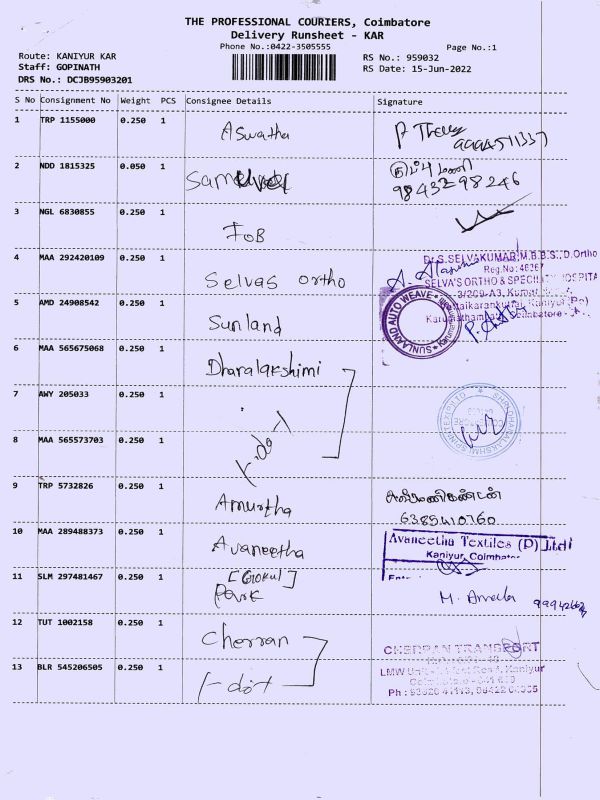 THE PROFESSIONAL COURIERS, Coimbatore
Delivery Runsheet - KAR
Phone No.:0422-3505555
Page No.:1
Route: KANIYUR KAR
RS No.: 959032
Staff: GOPINATH
RS Date: 15-Jun-2022
DRS No.: DCJB95903201
S No Consignment No Weight PCS Consignee Details Signature
1 TRP 1155000 0.250 1 Aswatha
9994511337
2 NDD 1815325 0.050 1
98432 98246
3 NGL 6830855 0.250 1 IOB
4 MAA 292420109 0.250 1 Selvas ortho
Dr.S.SELVAKUMAR,M.B.B.S.,D.Ortho
Reg.No:46367
SELVA'S ORTHO & SPECIALITY HOSPITAL
3/209-A3,
5 AMD 24908542 0.250 1 Sunland
SUNLAND AUTO WEAVE
6 MAA 565675068 0.250 1 Dharalakshimi
7 AWY 205033 0.250 1
8 MAA 565573703 0.250 1
9 TRP 5732826 0.250 1 Amurtha
6385410760
10 MAA 289488373 0.250 1 Avaneetha
Avaneetha Textiles (P) Ltd
Kaniyur, Coimbatore
11 SLM 297481467 0.250 1 [Gokul]
Park
12 TUT 1002158 0.250 1 Cherran
CHERRAN TRANSPORT
13 BLR 545206505 0.250 1
Kaniyur